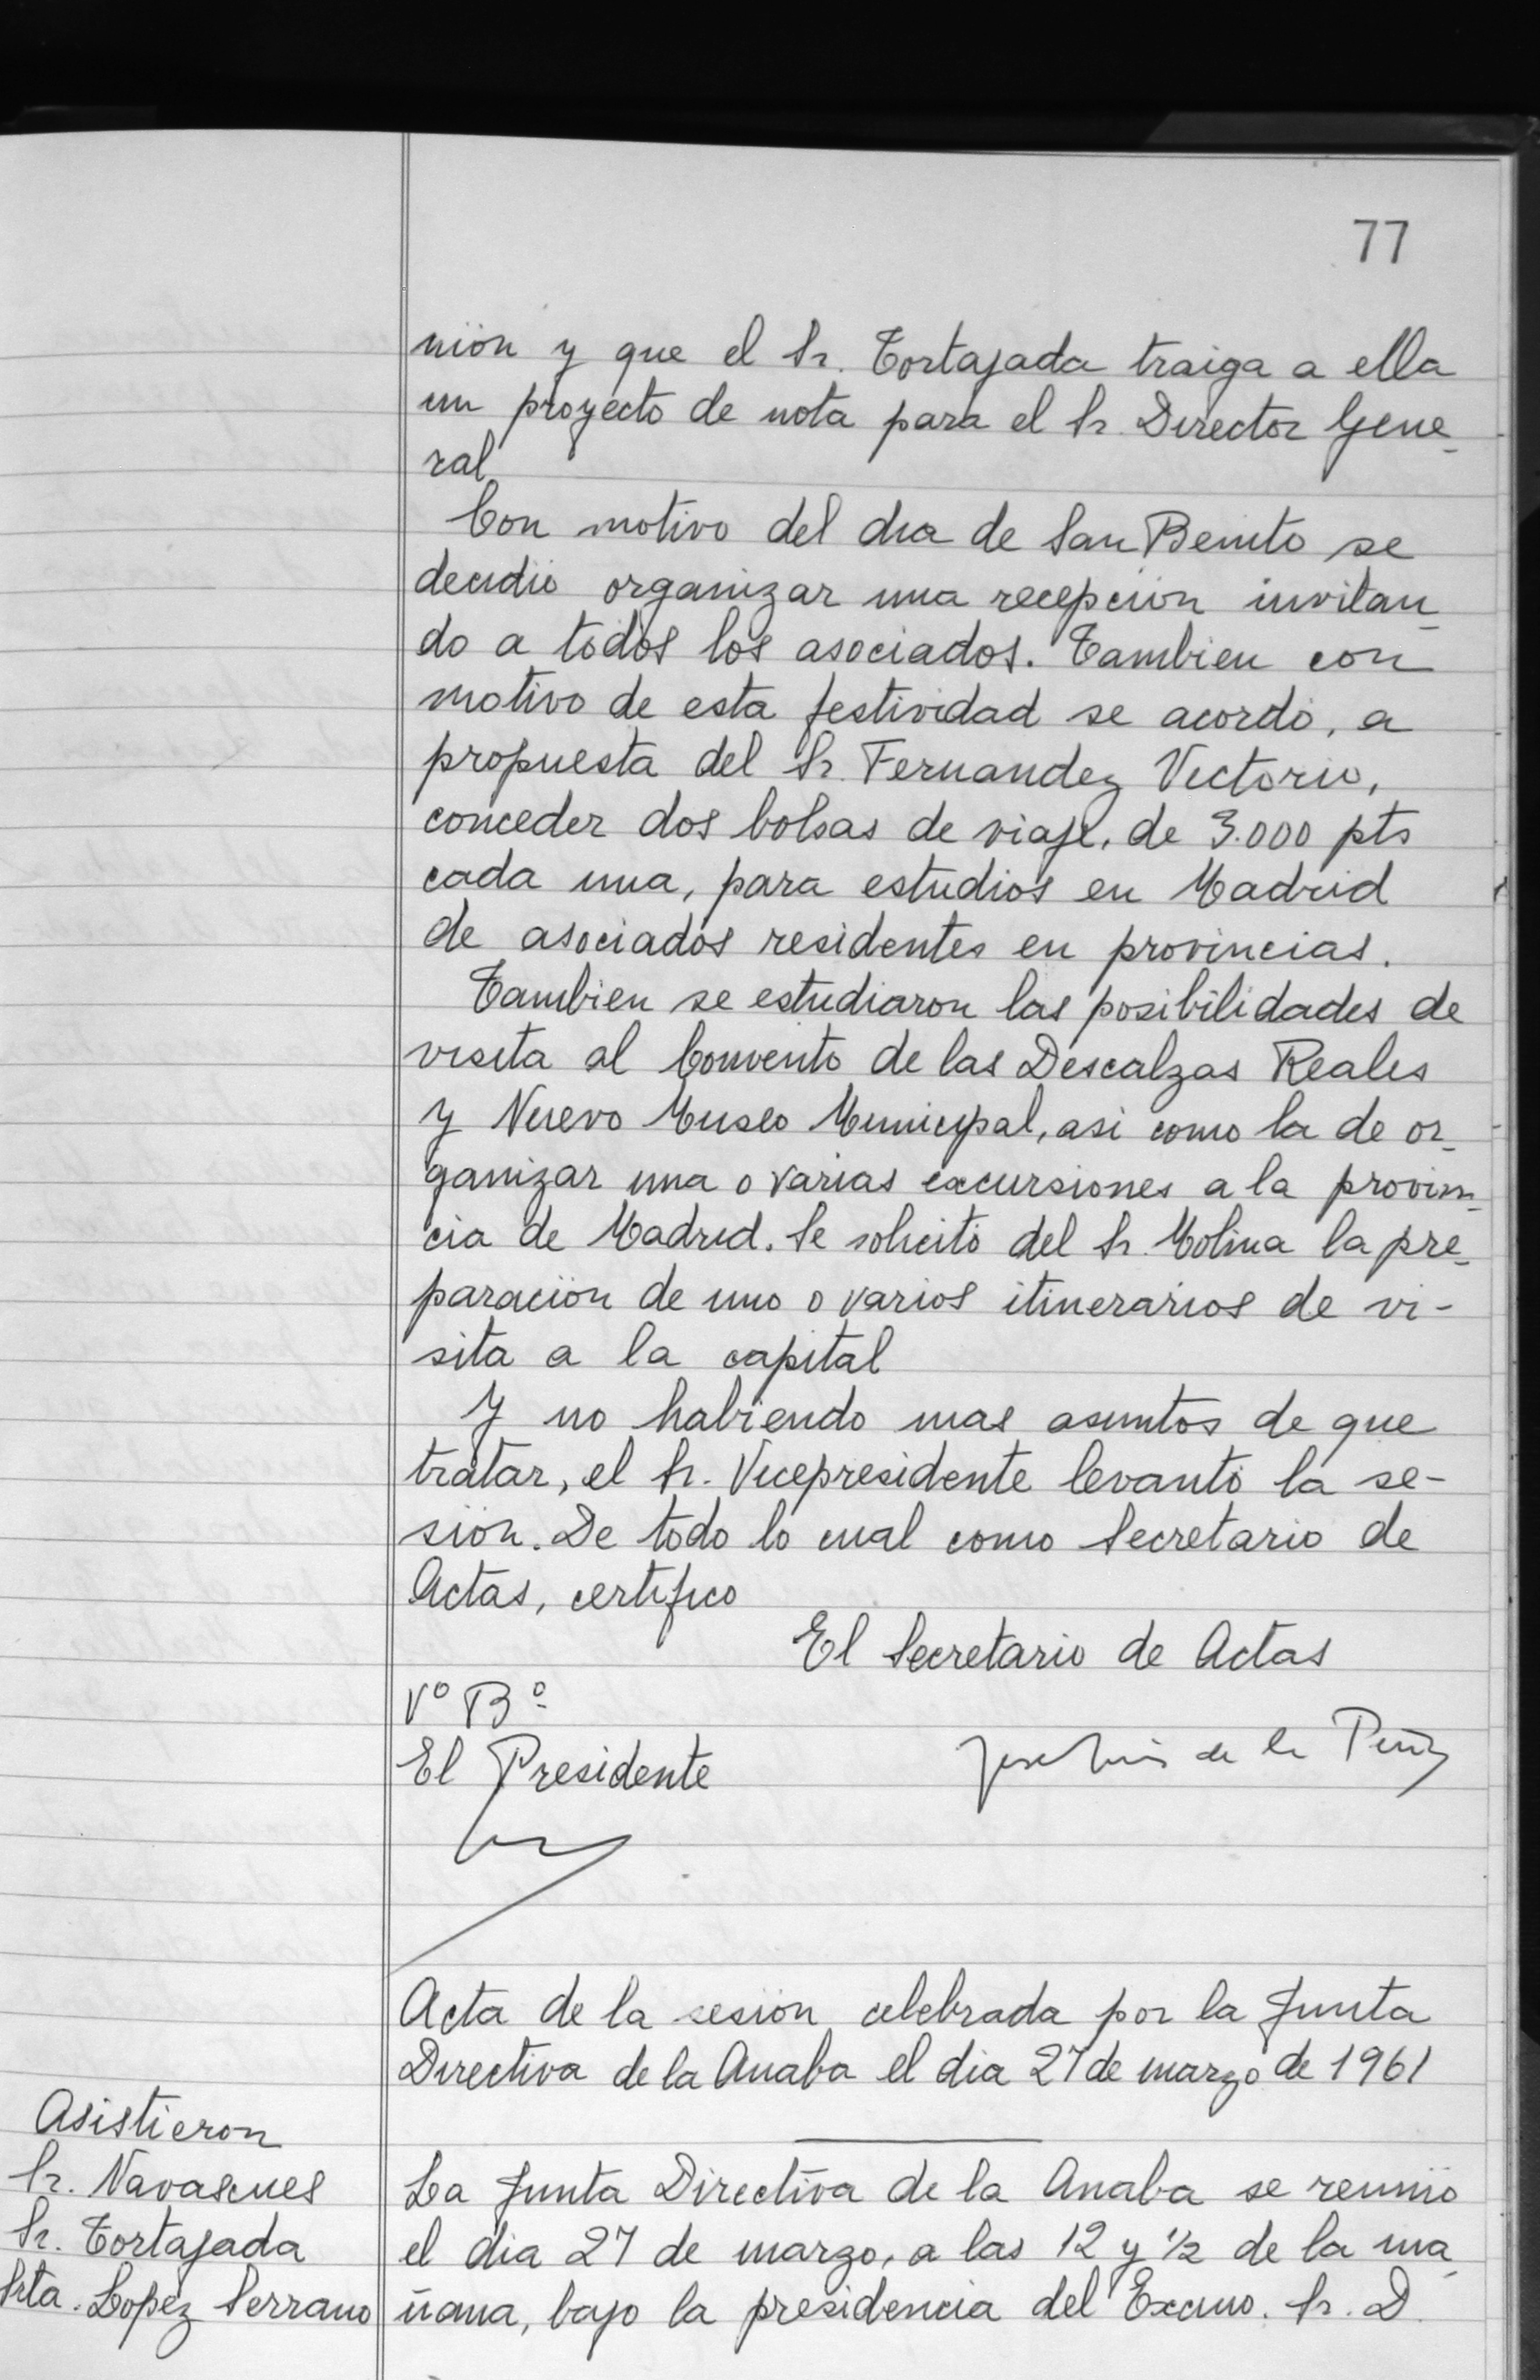 77
nión y que el Sr. Tortajada traiga a ella
un proyecto de nota para el Sr. Director Gene-
ral
Con motivo del dia de San Benito se
decidió organizar una recepción invitan-
do a todos los asociados. Tambien con
motivo de esta festividad se acordó, a
propuesta del Sr. Fernandez Victorio,
conceder dos bolsas de viaje, de 3.000 pts
cada una, para estudios en Madrid
de asociados residentes en provincias.
Tambien se estudiaron las posibilidades de
visita al Convento de las Descalzas Reales
y Nuevo Museo Municipal, asi como la de or-
ganizar una o varias excursiones a la provin-
cia de Madrid. Se solicitó del Sr. Molina la pre-
paración de uno o varios itinerarios de vi-
sita a la capital
Y no habiendo mas asuntos de que
tratar, el Sr. Vicepresidente levantó la se-
sión. De todo lo cual como Secretario de
Actas, certifico
El Secretario de Actas
Vº Bº
El Presidente
Jose Luis de la Peña
Acta de la sesión celebrada por la Junta
Directiva de la Anaba el dia 27 de marzo de 1961
Asistieron
Sr. Navascues
Sr. Tortajada
Srta. Lopez Serrano
La Junta Directiva de la Anaba se reunió
el dia 27 de marzo, a las 12 y ½ de la ma-
ñana, bajo la presidencia del Excmo. Sr. D.